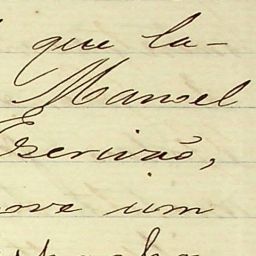 que la-
Manoel
Escrivão,
ove um